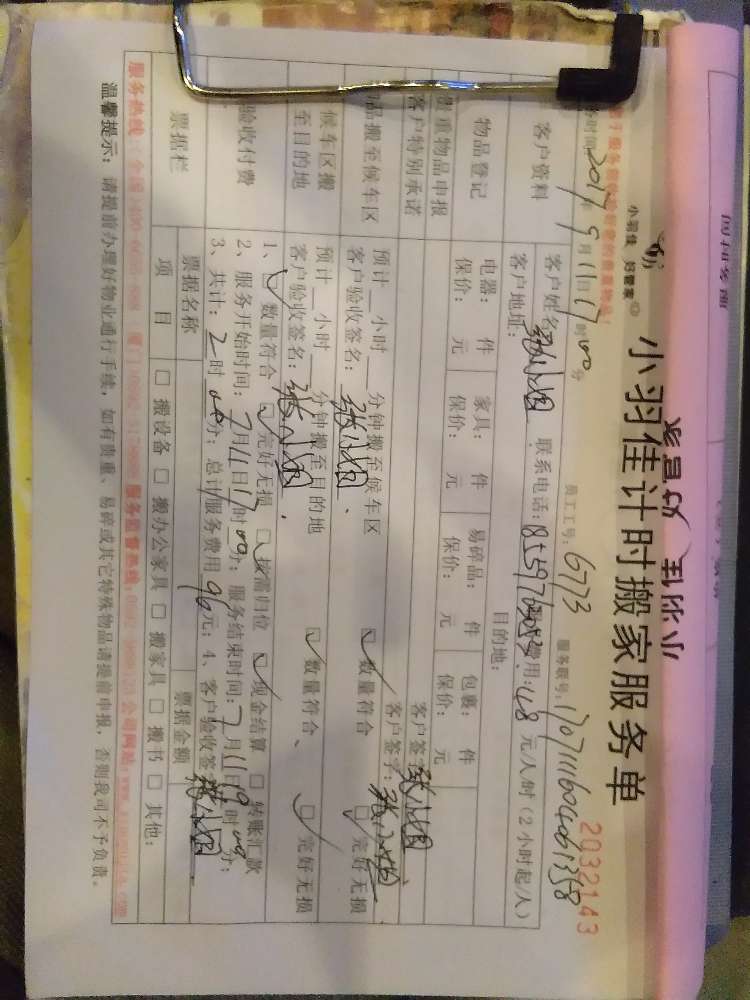 小羽佳计时搬家服务单
小羽佳 好管家
2032143
员工工号: 6773 服务联号:
2017年 月11日17时00分
客户资料
客户姓名: 张小姐 联系电话: 费用:48元/人/时(2小时起/人)
客户地址: 目的地:
物品登记
电器: 件 家具: 件 易碎品: 件 包裹: 件
保价: 元 保价: 元 保价: 元 保价: 元
贵重物品申报 客户签字: 张小姐
客户特别承诺 客户签字: 张小姐
物品搬至候车区
预计 小时 分钟搬至候车区 ☑数量符合 ☑完好无损
客户验收签名: 张小姐
候车区搬至目的地
预计 小时 分钟搬至目的地 ☑数量符合、 ☑完好无损
客户验收签名: 张小姐
验收付费
1、☑数量符合 ☑完好无损 ☑按需归位 ☑现金结算 □转账汇款
2、服务开始时间: 7月11日17时00分; 服务结束时间: 7月11日19时00分;
3、共计: 2时00分; 总计服务费用96元; 4、客户验收签字: 张小姐
票据栏
票据名称 票据金额
项目 □搬设备 □搬办公家具 □搬家具 □搬书 □其他:
服务热线: 全国 服务监督热线: 公司网站:
温馨提示: 请提前办理好物业通行手续, 如有贵重、易碎或其它特殊物品请提前申报, 否则我司不予负责。